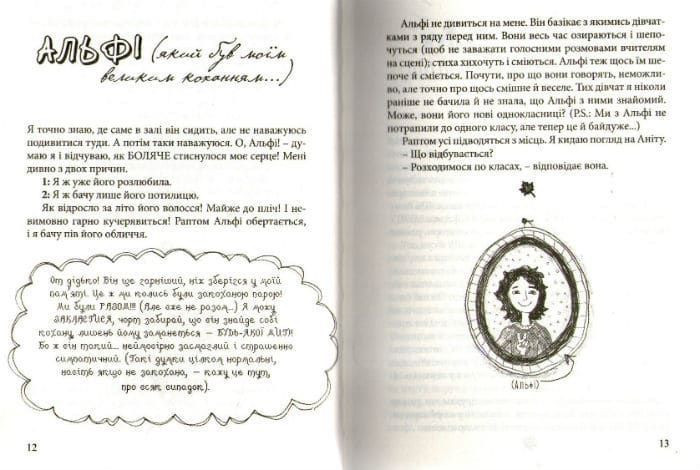 АЛЬФІ (який був моїм
великим коханням...)
Я точно знаю, де саме в залі він сидить, але не наважуюсь
подивитися туди. А потім таки наважуюся. О, Альфі! – ду-
маю я і відчуваю, як БОЛЯЧЕ стиснулося моє серце! Мені
дивно з двох причин.
1: Я ж уже його розлюбила.
2: Я ж бачу лише його потилицю.
Як відросло за літо його волосся! Майже до пліч! І не-
вимовно гарно кучерявиться! Раптом Альфі обертається,
і я бачу пів його обличчя.
От дідько! Він ще гарніший, ніж зберігся у моїй
пам'яті. Це ж ми колись були закоханою парою!
Ми були РАЗОМ!!! (Але вже не разом...) Я можу
ЗАКЛАСТИСЯ, чорт забирай, що він знайде собі
кохану, лишень йому заманеться – БУДЬ-ЯКОЇ МИТІ!
Бо ж він такий... неймовірно засмаглий і страшенно
симпатичний. (Такі думки цілком нормальні,
навіть якщо не закохана, – кажу це тут,
про всяк випадок).
12
Альфі не дивиться на мене. Він базікає з якимись дівчат-
ками з ряду перед ним. Вони весь час озираються і шепо-
чуться (щоб не заважати голосними розмовами вчителям
на сцені); стиха хихочуть і сміються. Альфі теж щось їм ше-
поче й сміється. Почути, про що вони говорять, неможли-
во, але точно про щось смішне й веселе. Тих дівчат я ніколи
раніше не бачила й не знала, що Альфі з ними знайомий.
Може, вони його нові однокласниці? (P.S.: Ми з Альфі не
потрапили до одного класу, але тепер це й байдуже...)
Раптом усі підводяться з місць. Я кидаю погляд на Аніту.
– Що відбувається?
– Розходимося по класах, – відповідає вона.
(Альфі)
13